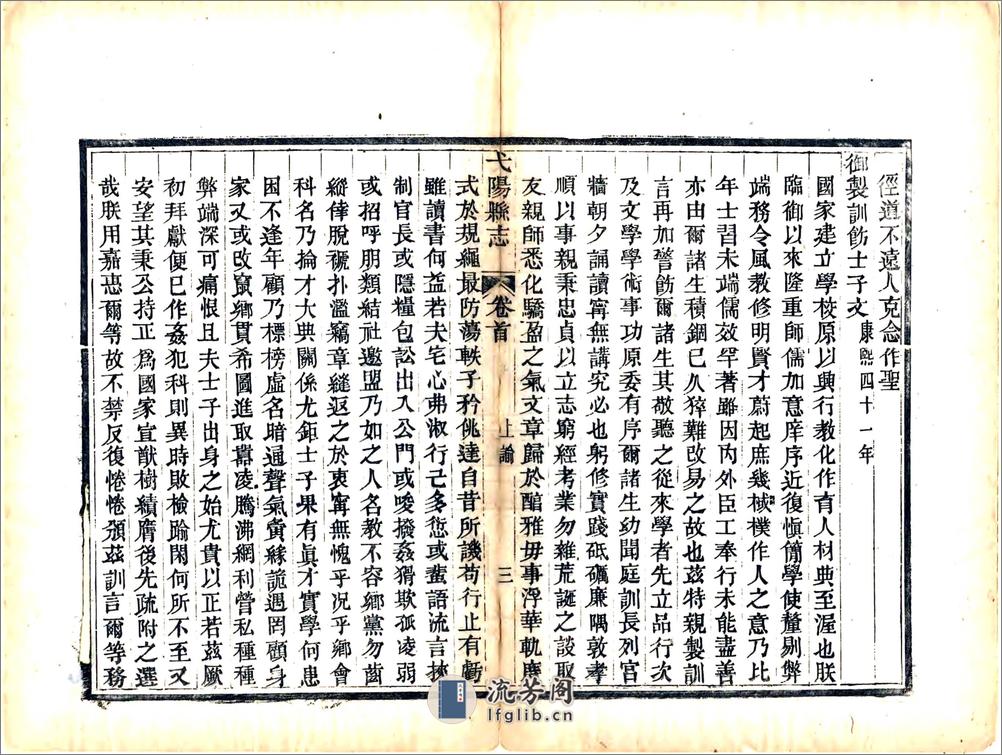 徑道不遠人克念作聖
御製訓飭士子文康熙四十一年
國家建立學校原以興行教化作育人材典至渥也朕
臨御以來隆重師儒加意庠序近復慎簡學使釐剔弊
端務令風教修明賢才蔚起庶幾棫樸作人之意乃比
年士習未端儒效罕著雖因内外臣工奉行未能盡善
亦由爾諸生積錮已久猝難改易之故也茲特親製訓
言再加警飭爾諸生其敬聽之從來學者先立品行次
及文學學術事功原委有序爾諸生幼聞庭訓長列宫
牆朝夕誦讀寗無講究必也躬修實踐砥礪廉隅敦孝
順以事親秉忠貞以立志窮經考業勿雜荒誕之談取
友親師悉化驕盈之氣文章歸於醇雅毋事浮華軌度
弋陽縣志 卷首 上諭 三
式於規繩最防蕩軼子矜佻達自昔所譏苟行止有虧
雖讀書何益若夫宅心弗淑行已多愆或蜚語流言挾
制官長或隱糧包訟出入公門或唆撥姦猾欺孤凌弱
或招呼朋類結社邀盟乃如之人名教不容鄉黨勿齒
縱倖脫褫扑濫竊章縫返之於衷寗無愧乎况乎鄉會
科名乃掄才大典關係尤鉅士子果有真才實學何患
困不逢年顧乃標榜虛名暗通聲氣夤緣詭遇罔顧身
家又或改竄鄉貫希圖進取囂凌騰沸網利營私種種
弊端深可痛恨且夫士子出身之始尤貴以正若茲厥
初拜獻便已作姦犯科則異時敗檢踰閑何所不至又
安望其秉公持正爲國家宣猷樹績膺後先疏附之選
哉朕用嘉惠爾等故不禁反復惓惓頒茲訓言爾等務
流芳阁
lfglib.cn